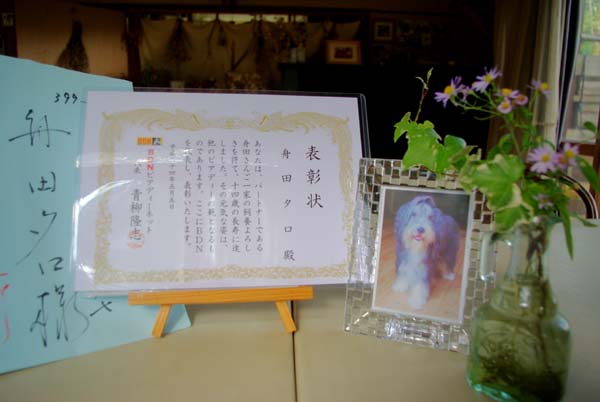 399-
舟田タロ様
表彰状
舟田タロ殿
あなたは、パートナーである
舟田さんご一家の飼養よろし
きを得て、十四歳の長寿に達
しました。その元気な姿は、
他のビアディーの範となるも
のであります。ここにBDN
を代表し、表彰いたします。
BDNビアディーネット
青柳隆志